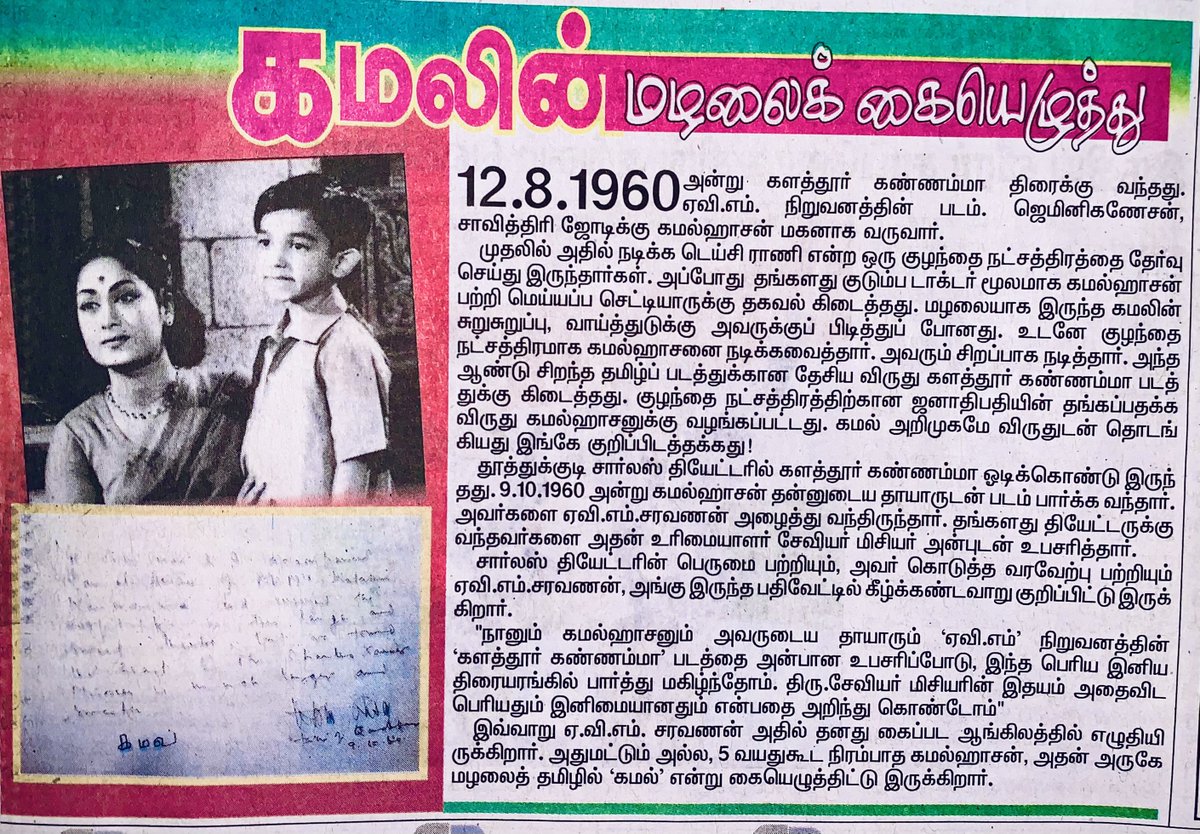 கமலின் மழலைக் கையெழுத்து
12.8.1960 அன்று களத்தூர் கண்ணம்மா திரைக்கு வந்தது.
ஏவி.எம். நிறுவனத்தின் படம். ஜெமினிகணேசன்,
சாவித்திரி ஜோடிக்கு கமல்ஹாசன் மகனாக வருவார்.
முதலில் அதில் நடிக்க டெய்சி ராணி என்ற ஒரு குழந்தை நட்சத்திரத்தை தேர்வு
செய்து இருந்தார்கள். அப்போது தங்களது குடும்ப டாக்டர் மூலமாக கமல்ஹாசன்
பற்றி மெய்யப்ப செட்டியாருக்கு தகவல் கிடைத்தது. மழலையாக இருந்த கமலின்
சுறுசுறுப்பு, வாய்த்துடுக்கு அவருக்குப் பிடித்துப் போனது. உடனே குழந்தை
நட்சத்திரமாக கமல்ஹாசனை நடிக்கவைத்தார். அவரும் சிறப்பாக நடித்தார். அந்த
ஆண்டு சிறந்த தமிழ்ப் படத்துக்கான தேசிய விருது களத்தூர் கண்ணம்மா படத்
துக்கு கிடைத்தது. குழந்தை நட்சத்திரத்திற்கான ஜனாதிபதியின் தங்கப்பதக்க
விருது கமல்ஹாசனுக்கு வழங்கப்பட்டது. கமல் அறிமுகமே விருதுடன் தொடங்
கியது இங்கே குறிப்பிடத்தக்கது!
தூத்துக்குடி சார்லஸ் தியேட்டரில் களத்தூர் கண்ணம்மா ஓடிக்கொண்டு இருந்
தது. 9.10.1960 அன்று கமல்ஹாசன் தன்னுடைய தாயாருடன் படம் பார்க்க வந்தார்.
அவர்களை ஏவி.எம்.சரவணன் அழைத்து வந்திருந்தார். தங்களது தியேட்டருக்கு
வந்தவர்களை அதன் உரிமையாளர் சேவியர் மிசியர் அன்புடன் உபசரித்தார்.
சார்லஸ் தியேட்டரின் பெருமை பற்றியும், அவர் கொடுத்த வரவேற்பு பற்றியும்
ஏவி.எம்.சரவணன், அங்கு இருந்த பதிவேட்டில் கீழ்க்கண்டவாறு குறிப்பிட்டு இருக்
கிறார்.
"நானும் கமல்ஹாசனும் அவருடைய தாயாரும் ‘ஏவி.எம்’ நிறுவனத்தின்
‘களத்தூர் கண்ணம்மா’ படத்தை அன்பான உபசரிப்போடு, இந்த பெரிய இனிய
திரையரங்கில் பார்த்து மகிழ்ந்தோம். திரு.சேவியர் மிசியரின் இதயம் அதைவிட
பெரியதும் இனிமையானதும் என்பதை அறிந்து கொண்டோம்"
இவ்வாறு ஏ.வி.எம். சரவணன் அதில் தனது கைப்பட ஆங்கிலத்தில் எழுதியி
ருக்கிறார். அதுமட்டும் அல்ல, 5 வயதுகூட நிரம்பாத கமல்ஹாசன், அதன் அருகே
மழலைத் தமிழில் ‘கமல்’ என்று கையெழுத்திட்டு இருக்கிறார்.
and
larger and
கமல்